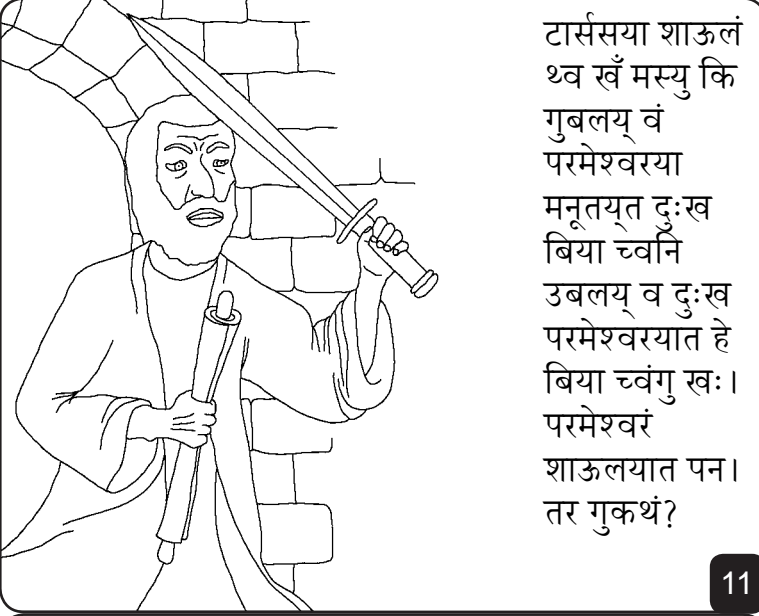 टार्ससया शाऊलं
थ्व खँ मस्यु कि
गुबलय् वं
परमेश्वरया
मनूतय्‌त दुःख
बिया च्वनि
उबलय् व दुःख
परमेश्वरयात हे
बिया च्वंगु खः।
परमेश्वरं
शाऊलयात पन।
तर गुकथं?
11